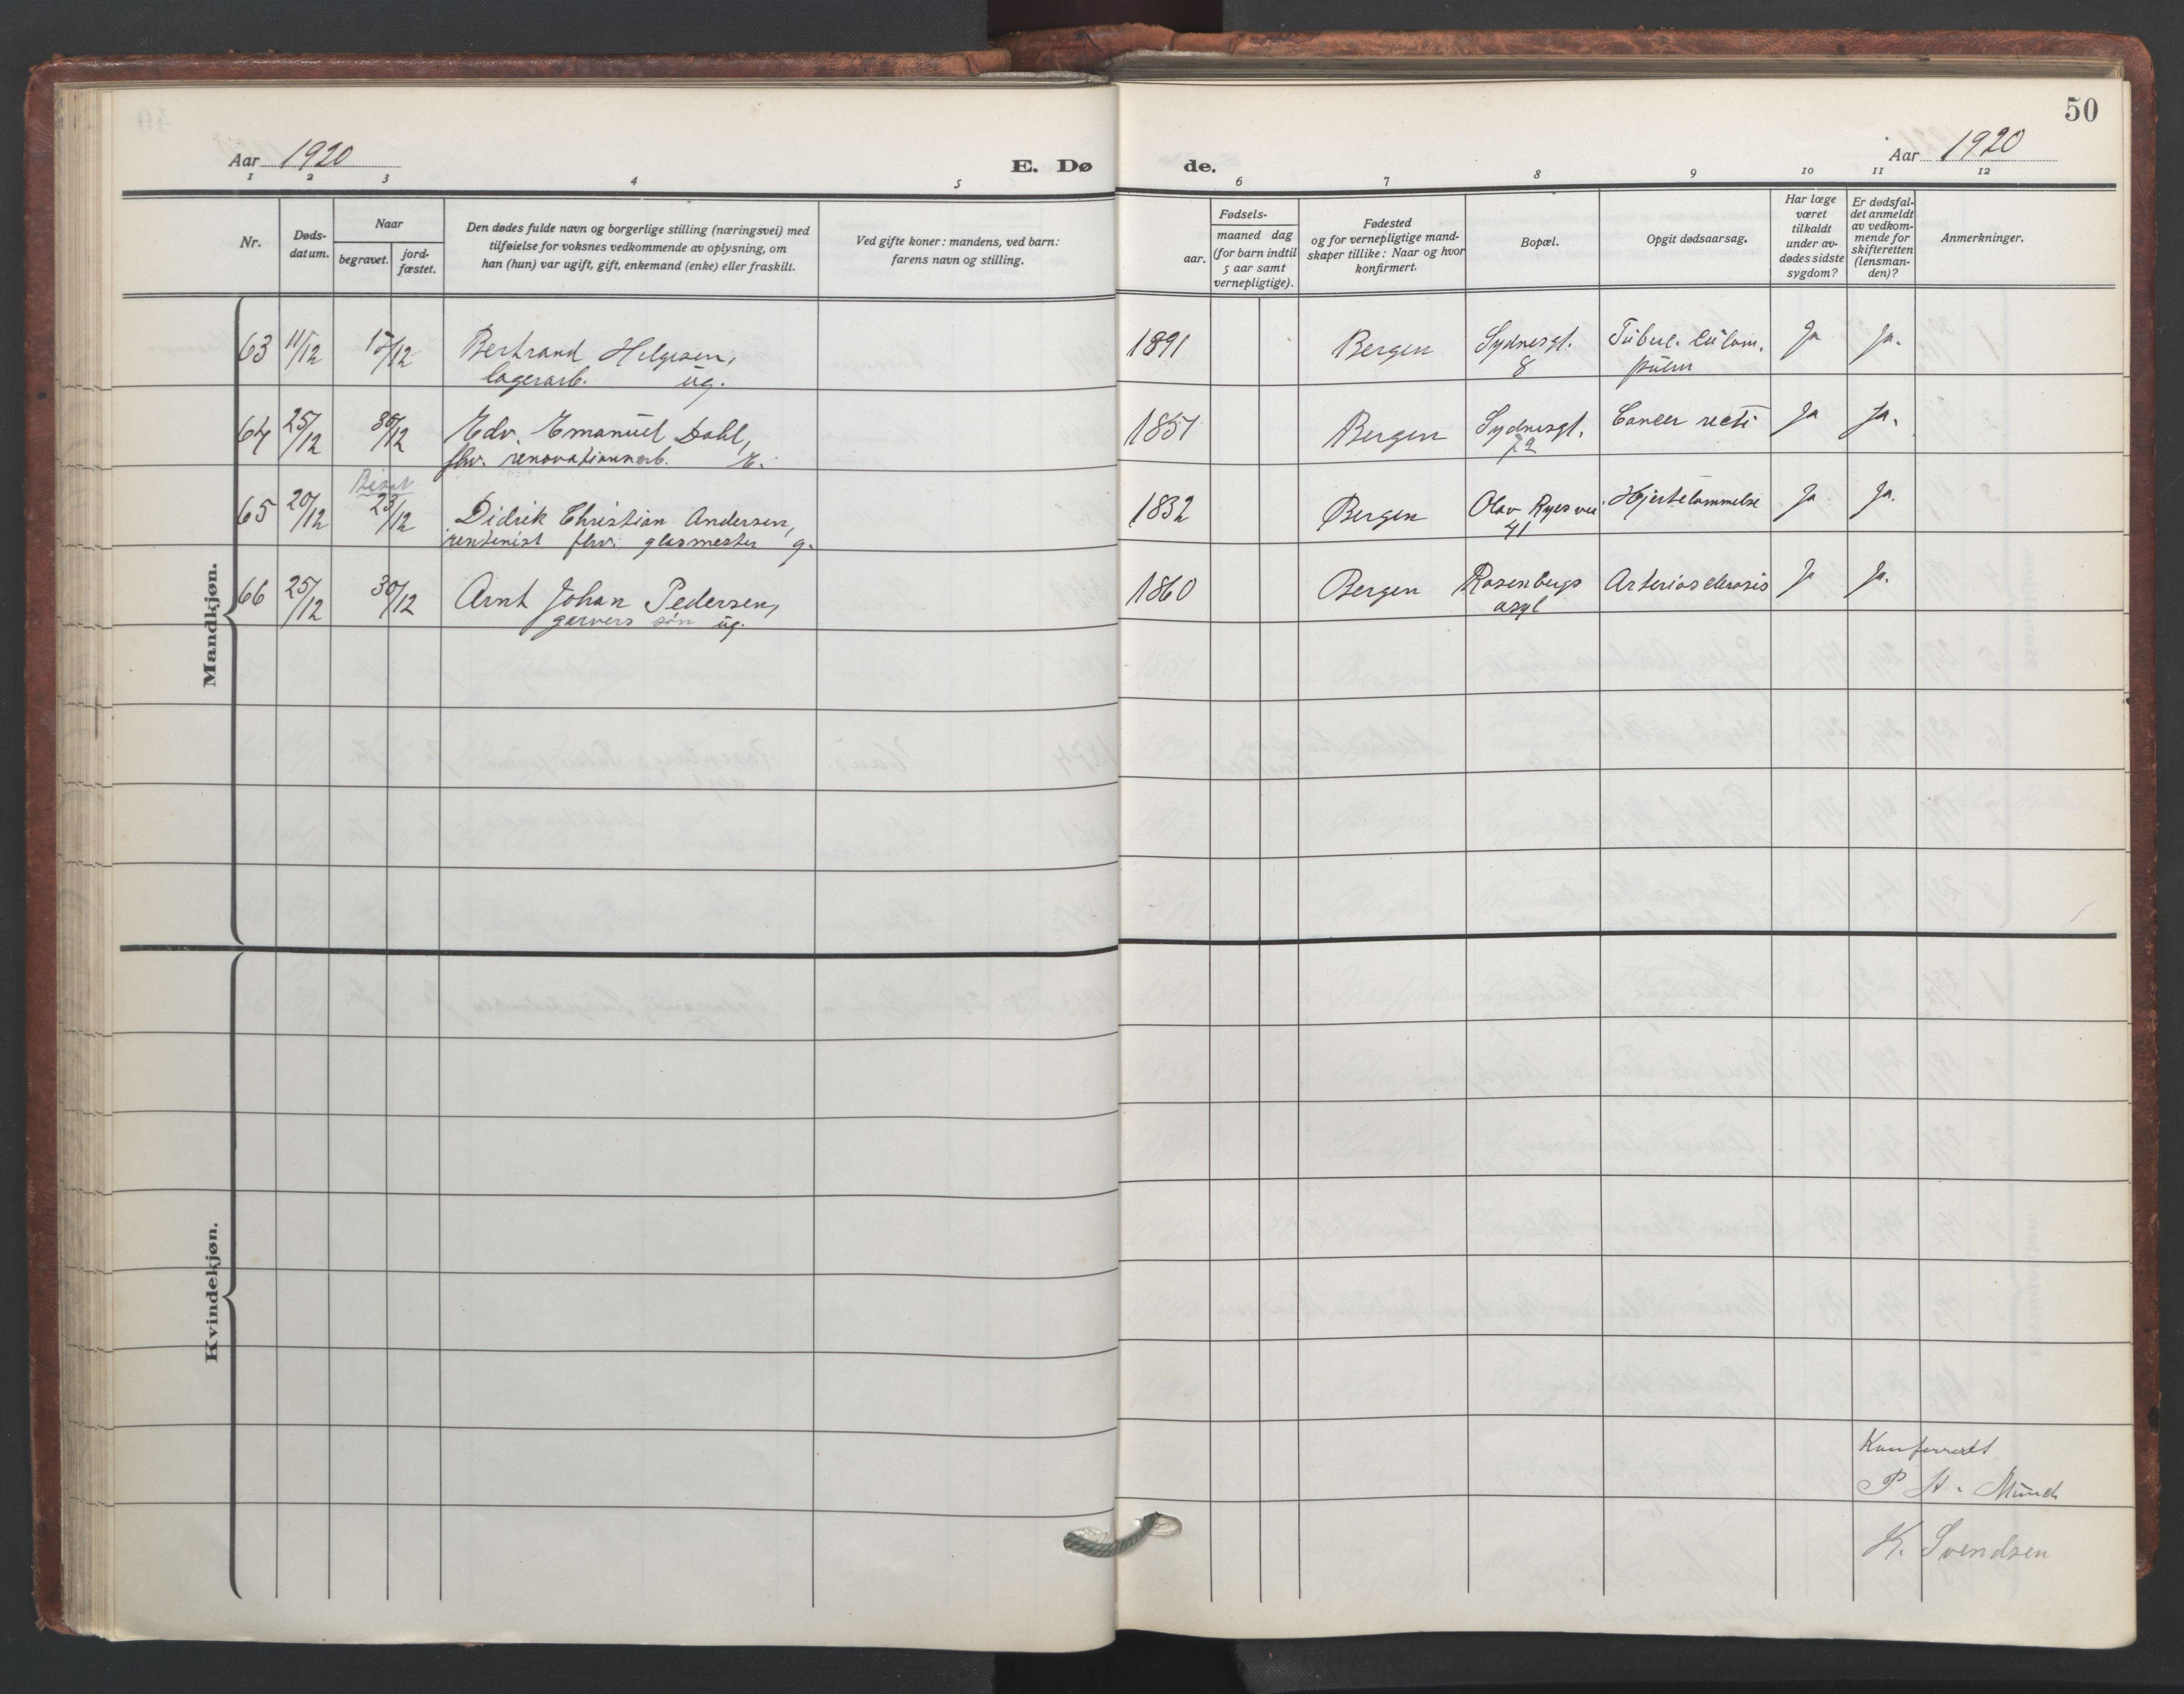 50
Aar 1920
E. Dø de.
Aar 1920
1 2 3 4 5 6 7 8 9 10 11 12
Nr.
Døds-
datum.
Naar
begravet.
jord-
fæstet.
Den dødes fulde navn og borgerlige stilling (næringsvei) med
tilføielse for voksnes vedkommende av oplysning, om
han (hun) var ugift, gift, enkemand (enke) eller fraskilt.
Ved gifte koner: mandens, ved barn:
farens navn og stilling.
Fødsels-
aar.
maaned dag
(for barn indtil
5 aar samt
vernepligtige).
Fødested
og for vernepligtige mand-
skaper tillike: Naar og hvor
konfirmert.
Bopæl.
Opgit dødsaarsag.
Har læge
været
tilkaldt
under av-
dødes sidste
sygdom?
Er dødsfal-
det anmeldt
av vedkom-
mende for
skifteretten
(lensman-
den)?
Anmerkninger.
Mandkjøn.
63 11/12 15/12 Bertrand Helgesen, 1891 Bergen Sydnesgt. Ja Ja.
lagerarb. ug. 8
64 25/12 30/12 Edv. Emanuel Dahl, 1857 Bergen Sydnesgt. Cancer recti Ja Ja.
fhv. renovationsarb. E.
65 20/12 23/12 Didrik Christian Andersen, 1832 Bergen Olav Ryes vei Hjertelammelse Ja Ja.
rentenist fhv. glasmester g. 41
66 25/12 30/12 Arnt Johan Pedersen, 1860 Bergen Rosenbergs Arteriosclerosis Ja Ja.
garvers søn ug. asyl
Kvindekjøn.
Konferert
P. A. Munch
K. Svendsen